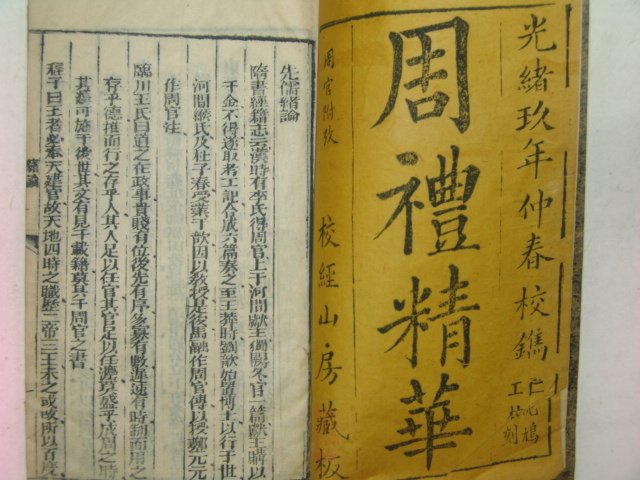 光緒玖年仲春校鐫
周禮精華
周官附攷
校經山房藏板
先儒緒論
隋書經籍志云漢時有李氏得周官上于河間獻王獨闕冬官一篇獻王購以
千金不得遂取考工記合成六篇奏之至王莽時劉歆始置博士以行于世
河間緱氏及杜子春受業于歆因以教授是後馬融作周官傳以授鄭元元
作周官注
臨川王氏曰道之在政事貴賤有位後先有序多寡有數遲速有時制而用之
存乎德推而行之存乎人其人足以任官其官足以行法莫盛乎成周之時
其法可施于後世其文有見于載籍莫具乎周官之書
程子曰王者必奉天建官故天地四時之職歷二帝三王未之或改所以百度
緒論